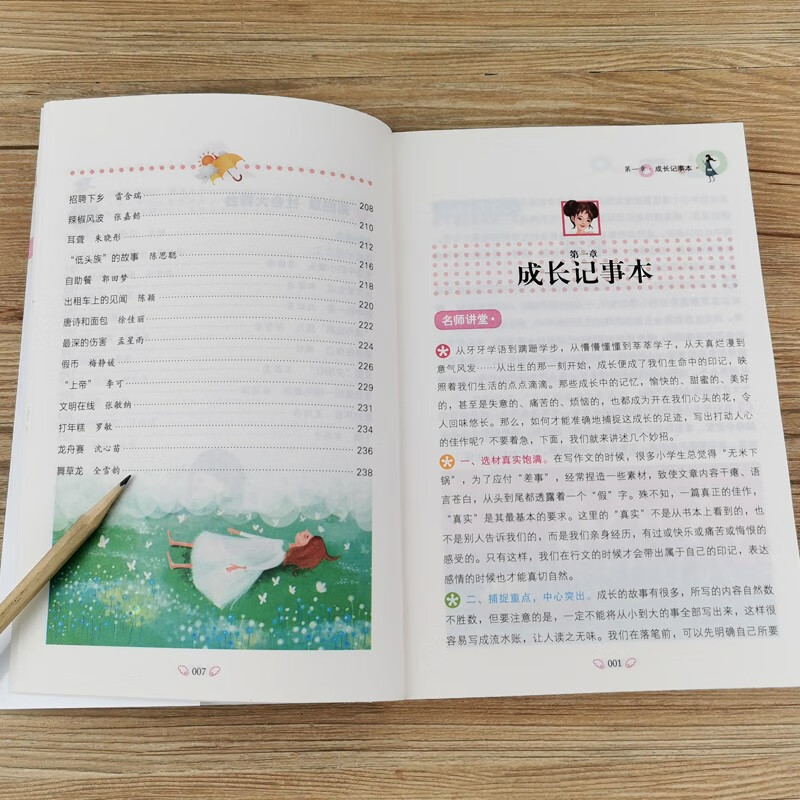 招聘下乡 雷含瑞 208
辣椒风波 张嘉懿 210
耳聋 朱晓彤 212
“低头族”的故事 陈思聪 216
自助餐 郭田梦 218
出租车上的见闻 陈颖 220
唐诗和面包 徐佳丽 222
最深的伤害 孟星雨 224
假币 梅静媛 226
“上帝” 李可 229
文明在线 张敏纳 231
打年糕 罗敏 234
龙舟赛 沈心苗 236
舞草龙 全雪韵 238
007
第一章 成长记事本
第一章
成长记事本
名师讲堂
从牙牙学语到蹒跚学步，从懵懵懂懂到莘莘学子，从天真烂漫到
意气风发……从出生的那一刻开始，成长便成了我们生命中的印记，映
照着我们生活的点点滴滴。那些成长中的记忆，愉快的、甜蜜的、美好
的，甚至是失意的、痛苦的、烦恼的，也都成为开在我们心头的花，令
人回味悠长。那么，如何才能准确地捕捉这成长的足迹，写出打动人心
的佳作呢？不要着急，下面，我们就来讲述几个妙招。
一、选材真实饱满。在写作文的时候，很多小学生总觉得“无米下
锅”，为了应付“差事”，经常捏造一些素材，致使文章内容干瘪、语
言苍白，从头到尾都透露着一个“假”字。殊不知，一篇真正的佳作，
“真实”是其最基本的要求。这里的“真实”不是从书本上看到的，也
不是别人告诉我们的，而是我们亲身经历，有过或快乐或痛苦或悔恨的
感受的。只有这样，我们在行文的时候才会带出属于自己的印记，表达
感情的时候也才能真切自然。
二、捕捉重点，中心突出。成长的故事有很多，所写的内容自然数
不胜数，但要注意的是，一定不能将从小到大的事全部写出来，这样很
容易写成流水账，让人读之无味。我们在落笔前，可以先明确自己所要
001